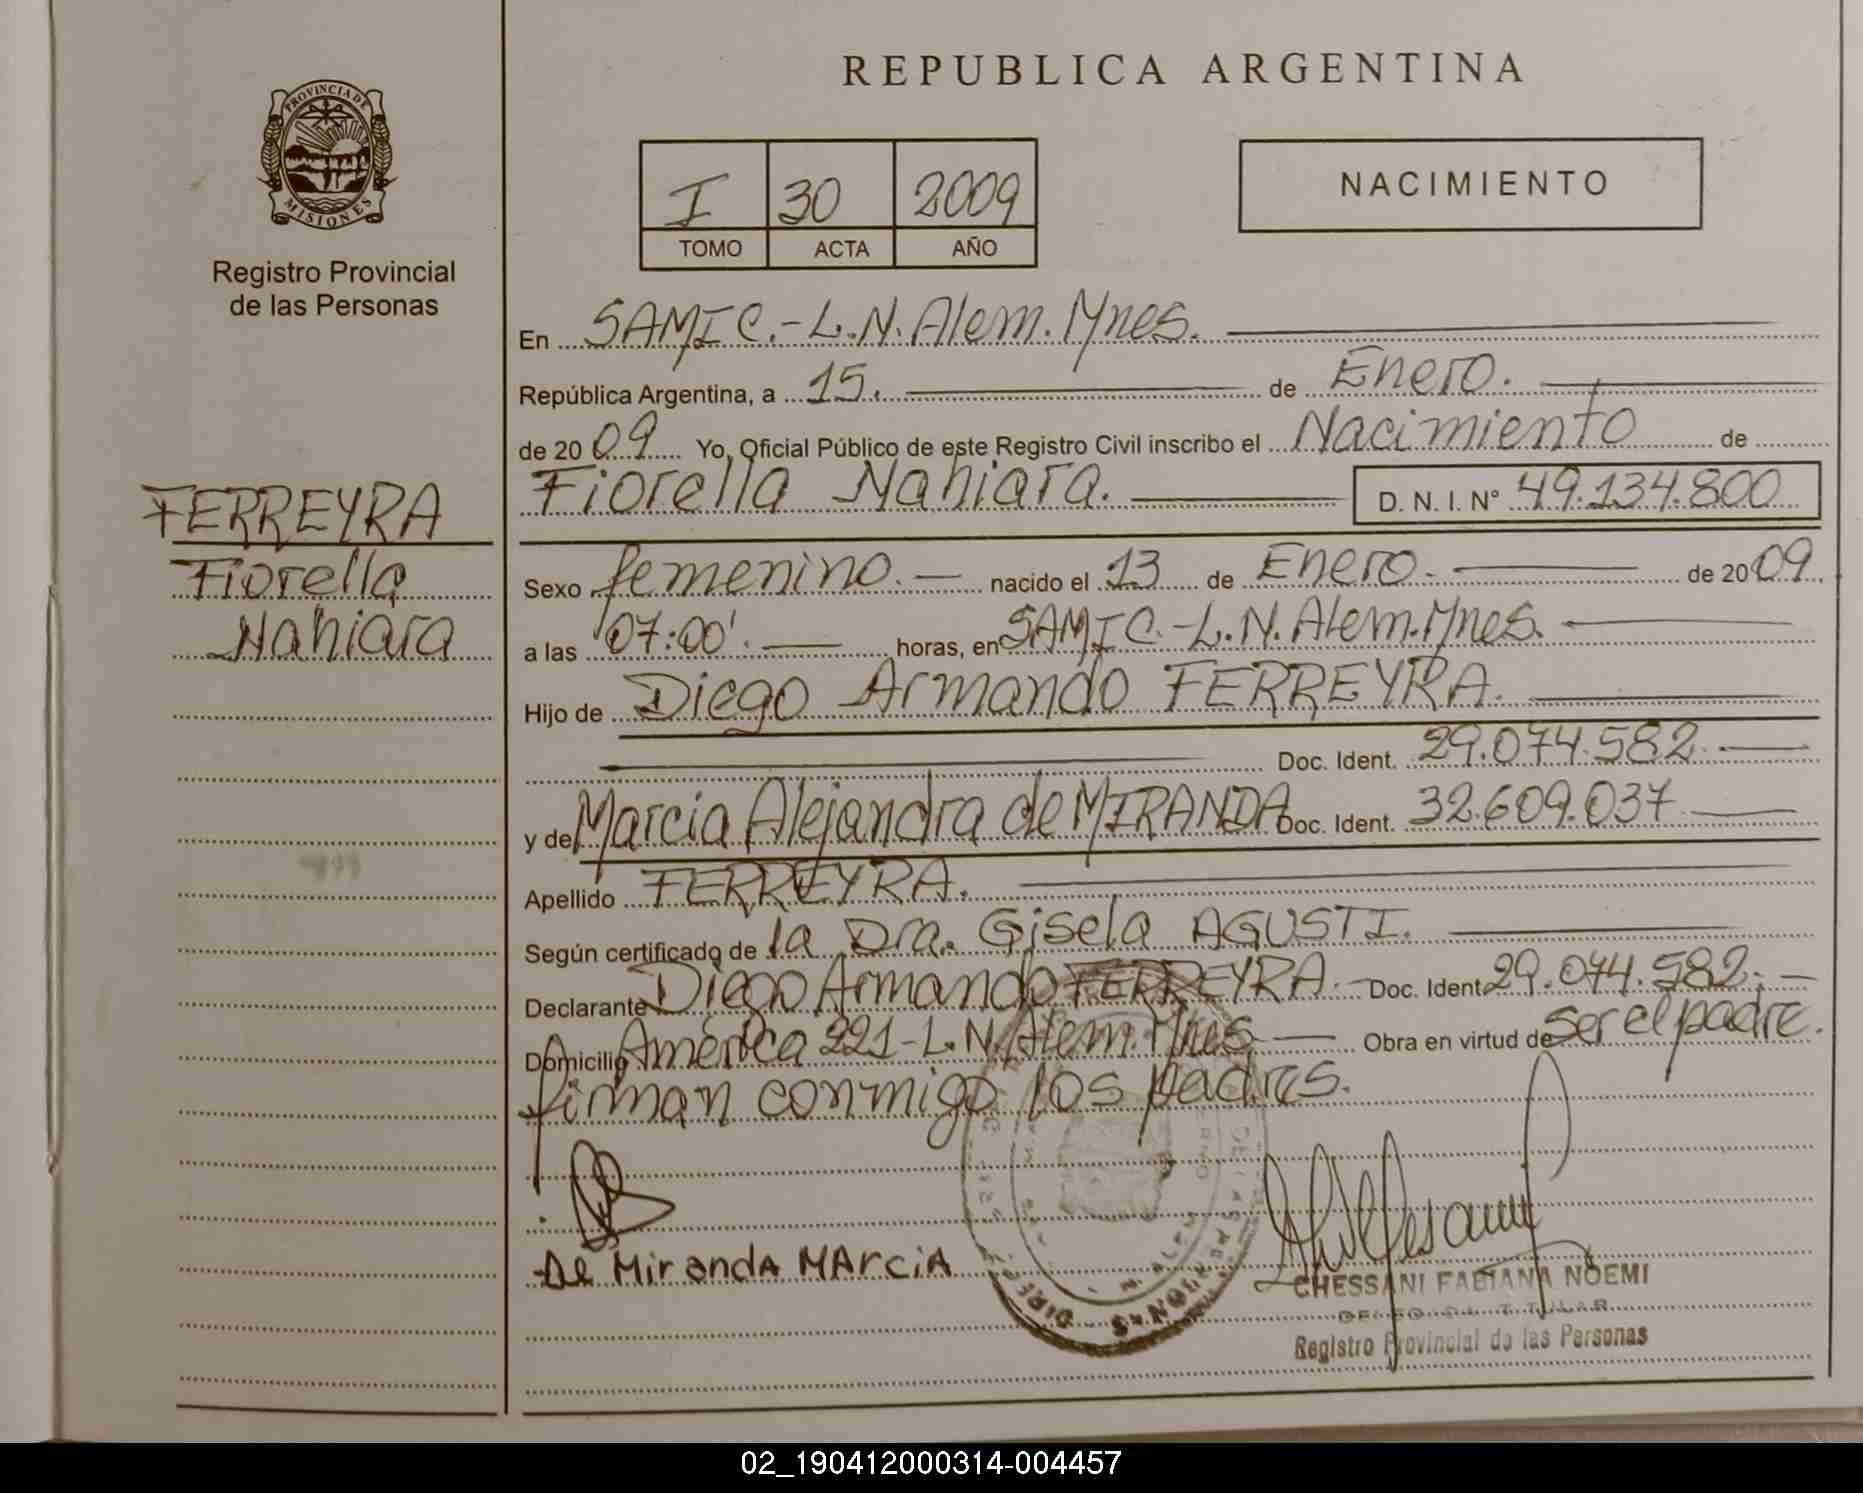 REPUBLICA ARGENTINA
PROVINCIA DE
MISIONES
Registro Provincial
de las Personas
I 30 2009
TOMO ACTA AÑO
NACIMIENTO
En SAMIC.-L.N.Alem.Mnes.
República Argentina, a 15. de Enero.
de 2009 Yo, Oficial Público de este Registro Civil inscribo el Nacimiento de
Fiorella Nahiara. D. N. I. Nº 49.134.800
FERREYRA
Fiorella
Nahiara
Sexo femenino. nacido el 13 de Enero. de 2009
a las 07:00'. horas, en SAMIC.-L.N.Alem.Mnes.
Hijo de Diego Armando FERREYRA.
Doc. Ident. 29.074.582
y de Marcia Alejandra de MIRANDA Doc. Ident. 32.609.037
Apellido FERREYRA.
Según certificado de la Dra. Gisela AGUSTI.
Declarante Diego Armando FERREYRA. Doc. Ident 29.074.582.
Domicilio América 221-L.N.Alem.Mnes Obra en virtud de ser el padre.
firman conmigo los padres.
De Miranda MArciA
CHESSANI FABIANA NOEMI
Registro Provincial de las Personas
02_190412000314-004457